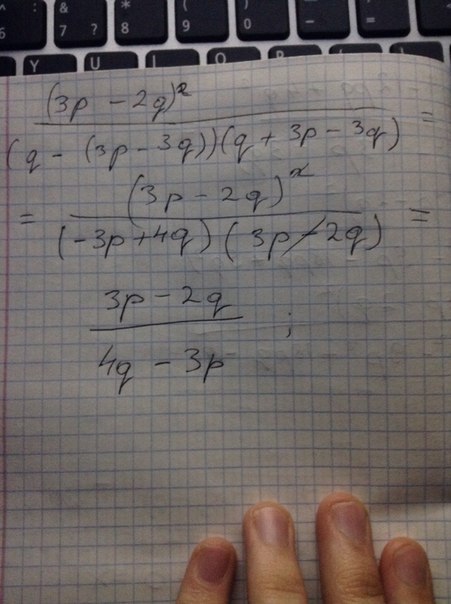 ^ 6 & 7 ? * 8 ( 9 ) 0 _ - + =
Y U I O P
(3p - 2q)²
(q - (3p - 3q))(q + 3p - 3q) =
= (3p - 2q)²
(-3p + 4q) (3p - 2q) =
3p - 2q
4q - 3p ;